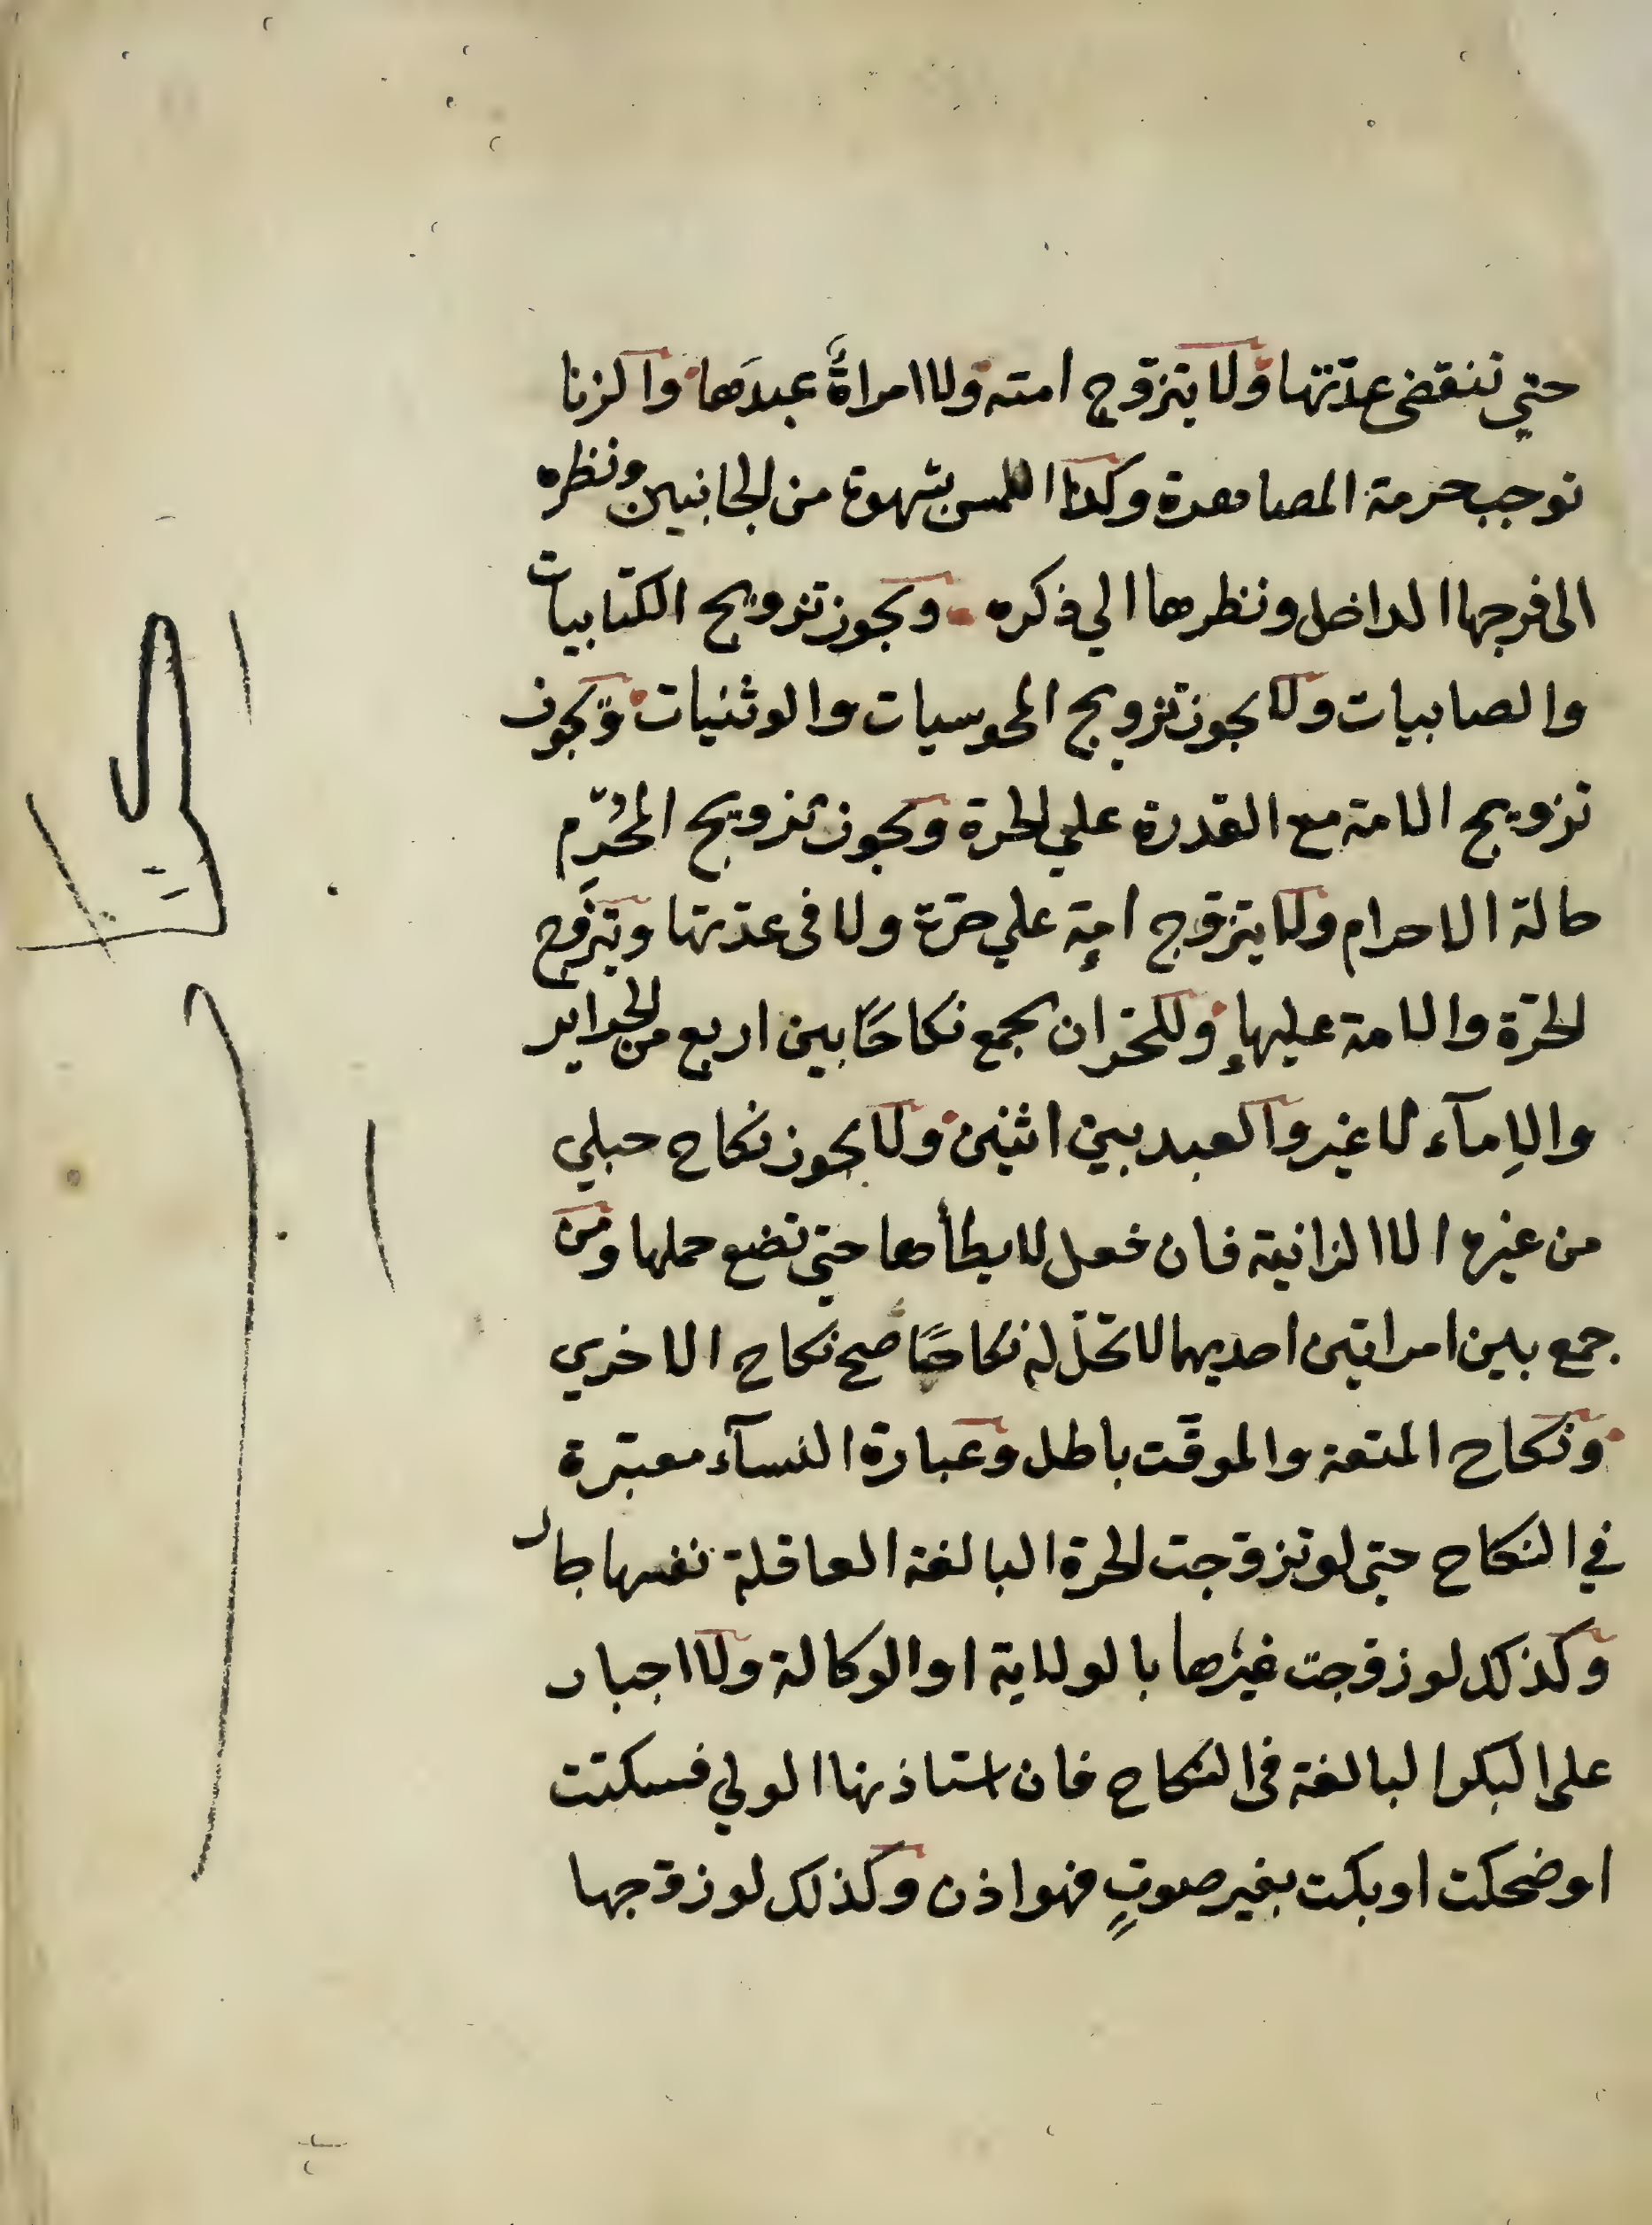 حتي تنقضي عدّتها ولا يتزوج امته ولا امراةٌ عبدَها والزنا
توجب حرمة المصاهرة وكذا اللمس بشهوة من الجانبين ونظره
الى فرجها الداخل ونظرها الي ذكره ويجوز تزويج الكتابيات
والصابيات ولا يجوز تزويج المجوسيات والوثنيات ويجوز
تزويج الامة مع القدرة علي الحرة ويجوز تزويج المُحرِم
حالة الاحرام ولا يتزوج امة علي حرّة ولا في عدّتها ويتزوج
الحرّة والامة عليها وللحر ان يجمع نكاحًا بين اربع من الحراير
والاِمآء لا غير والعبد بين اثنين ولا يجوز نكاح حبلي
من غيره الا الزانية فان فعل لا يطأها حتي تضع حملها ومن
جمع بين امراتين احديهما لا تحلّ له نكاحًا صح نكاح الاخري
ونكاح المتعة والموقّت باطل وعبارة النسآء معتبرة
في النكاح حتي لو تزوجت الحرة البالغة العاقلة نفسها جاز
وكذلك لو زوجت غيرها بالولاية او الوكالة ولا اجبار
على البكر البالغة في النكاح فان استاذنها الولي فسكتت
او ضحكت او بكت بغير صوتٍ فهو اذن وكذلك لو زوجها